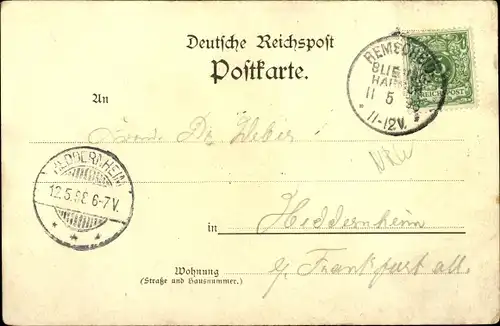 Deutsche Reichspost
Postkarte.
REMSCHEID
11 5
11-12V.
REICHSPOST
An
Dr. Weber
NRW
HEDDERNHEIM
12.5.98.6-7V.
in Heddernheim
Wohnung
(Straße und Hausnummer.)
Frankfurt